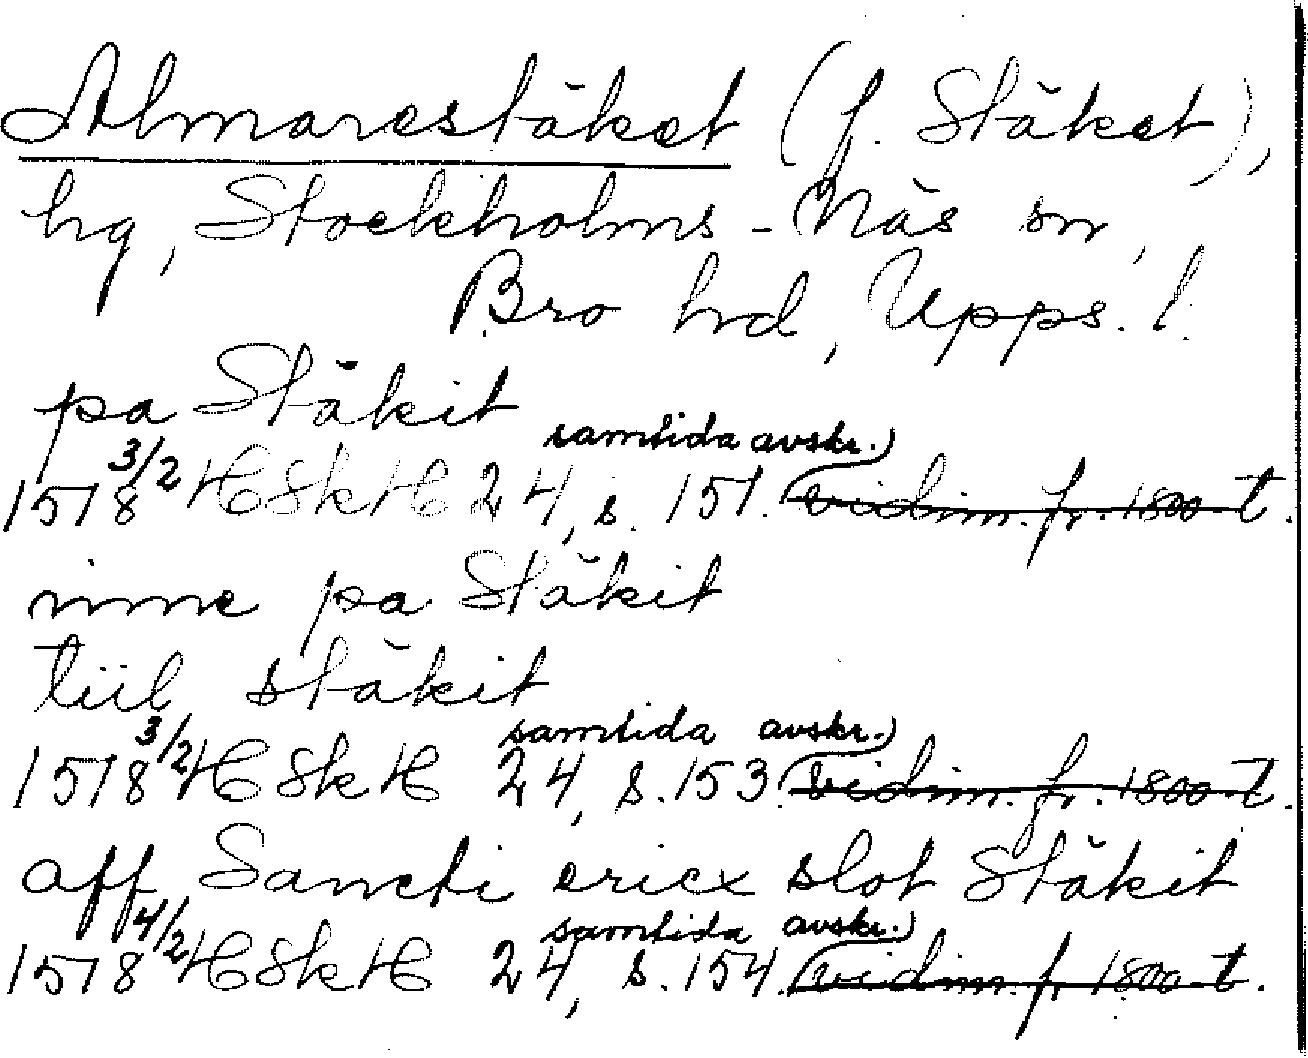 Almarestäket (f. Stäket),
hg, Stockholms-Näs sn,
Bro hd, Upps. l.
pa Stäkit
samtida avskr.)
1518 3/2 HSkH 24, s. 151. (vidim. fr. 1800-t.
inne pa Stäkit
tiil stäkit
samtida avskr.)
1518 3/2 HSkH 24, s. 153. (vidim. fr. 1800-t.
aff Sancti ericx slot Stäkit
samtida avskr.)
1518 4/2 HSkH 24, s. 154. (vidim. fr 1800-t.